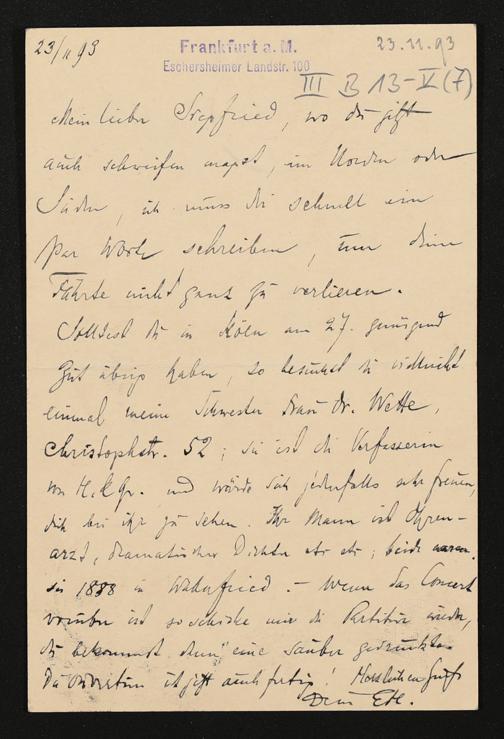 23/11 93
Frankfurt a. M.
Eschersheimer Landstr. 100
23.11.93
III B 13-V (7)
Mein lieber Siegfried, wo du jetzt
auch schweifen magst, im Norden oder
Süden, ich muss dir schnell ein
paar Worte schreiben, um deine
Fährte nicht ganz zu verlieren.
Solltest du in Köln am 27. genügend
Zeit übrig haben, so besuchst du vielleicht
einmal meine Schwester Frau Dr. Wette,
Christophstr. 52; sie ist die Verfasserin
von H. & Gr. und würde sich jedenfalls sehr freuen,
dich bei ihr zu sehen. Ihr Mann ist Ohren-
arzt, dramatischer Dichter etc etc; beide waren
sie 1888 in Wahnfried. – Wenn das Concert
vorüber ist so schicke mir die Partitur wieder,
du bekommst dann eine sauber gedruckte.
Die Ouverture ist jetzt auch fertig! Herzlichen Gruß
Dein